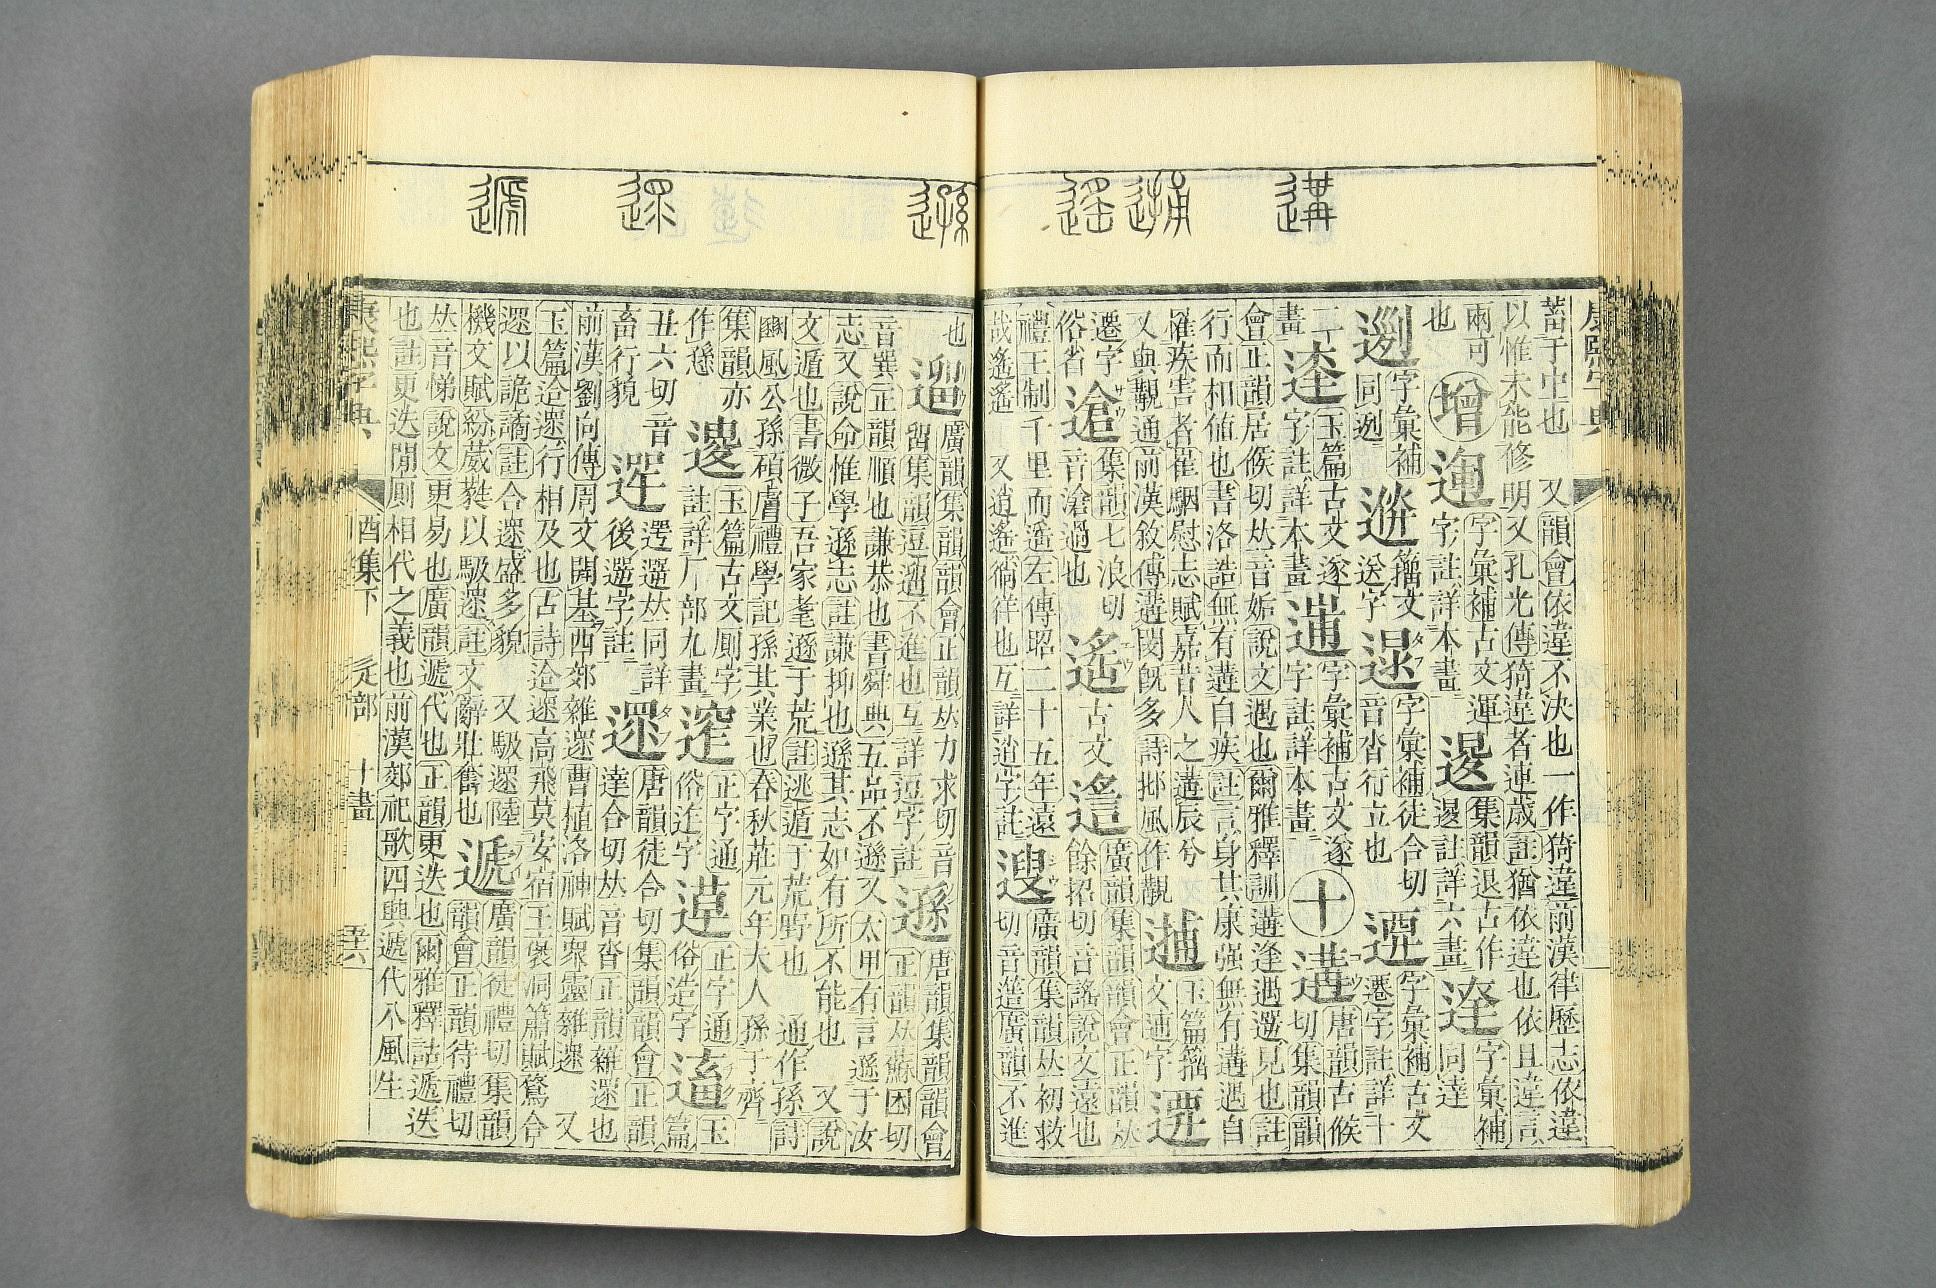 講 逋 遙 遜 遝 遞
康熙字典
蓄于中也 又韻會依違不決也一作猗違前漢律歷志依違
以惟未能修明又孔光傳猗違者連歲註猶依違也依且違言
兩可也
增
字彙補古文運字註詳本畫
集韻退古作𨓤註詳六畫
字彙補同逹
字彙補同迾
籀文送字
字彙補徒合切音沓行立也
字彙補古文遷字註詳十二畫
玉篇古文逐字註詳本畫
字彙補古文逐字註詳本畫
十
遘 唐韻古候切集韻韻
會正韻居候切𠀤音姤說文遇也爾雅釋訓遘逢遇遻見也註
行而相值也書洛誥無有遘自疾註言身其康强無有遘遇自
罹疾害者崔駰慰志賦嘉昔人之遘辰兮
又與覯通前漢敘傳遘閔旣多詩邶風作覯
玉篇籀文逋字
遷字俗省
集韻七浪切音滄過也
遙 古文
廣韻集韻韻會正韻𠀤餘招切音謠說文遠也
禮王制千里而遙左傳昭二十五年遠
哉遙遙 又逍遙猶徜徉也互詳逍字註
廣韻集韻𠀤初救切音簉廣韻不進
也
遛 廣韻集韻韻會正韻𠀤力求切音
畱集韻逗遛不進也互詳逗字註
遜 唐韻集韻韻會
正韻𠀤蘇困切
音巽正韻順也謙恭也書舜典五品不遜又太甲有言遜于汝
志又說命惟學遜志註謙抑也遜其志如有所不能也 又說
文遁也書微子吾家耄遜于荒註逃遁于荒野也 通作孫詩
豳風公孫碩膚禮學記孫其業也春秋莊元年夫人孫于齊
集韻亦作愻
玉篇古文厠字註詳厂部九畫
正字通俗迮字
正字通俗造字
玉篇
丑六切音畜行貌
遝 唐韻徒合切集韻韻會正韻
達合切𠀤音沓正韻雜遝也
前漢劉向傳周文開基西郊雜遝曹植洛神賦衆靈雜遝 又
玉篇迨遝行相及也古詩迨遝高飛莫安宿王褒洞簫賦鶩合
遝以詭譎註合遝盛多貌 又馺遝陸
機文賦紛葳蕤以馺遝註文辭壯舊也
遞 廣韻徒禮切集韻
韻會正韻待禮切
𠀤音悌說文更易也廣韻遞代也正韻更迭也爾雅釋詁遞迭
也註更迭閒厠相代之義也前漢郊祀歌四興遞代八風生
康熙字典 酉集下 辵部 十畫